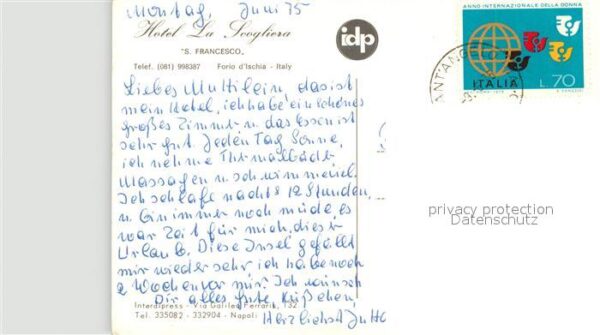 Montag, Juni 75
Hotel La Scogliera
"S. FRANCESCO"
Telef. (081) 998387 Forio d'Ischia - Italy
idp
ANNO INTERNAZIONALE DELLA DONNA
ITALIA L. 70
SANT'ANGELO
Liebes Muttilein, das ist
mein Hotel, ich habe ein schönes
großes Zimmer u. das Essen ist
sehr gut. Jeden Tag Sonne,
ich nehme Thermalbäder
Massagen u. schwimme viel.
Ich schlafe nachts 12 Stunden,
u. bin immer noch müde, es
war Zeit für mich, dieser
Urlaub. Diese Insel gefällt
mir wieder sehr ich habe noch
2 Wochen vor mir. Ich wünsch
Dir alles Gute, Küßchen!
Herzlichst Jutta
Interdipress - Via Galileo Ferraris, 132
Tel. 335082 - 332904 - Napoli
privacy protection
Datenschutz